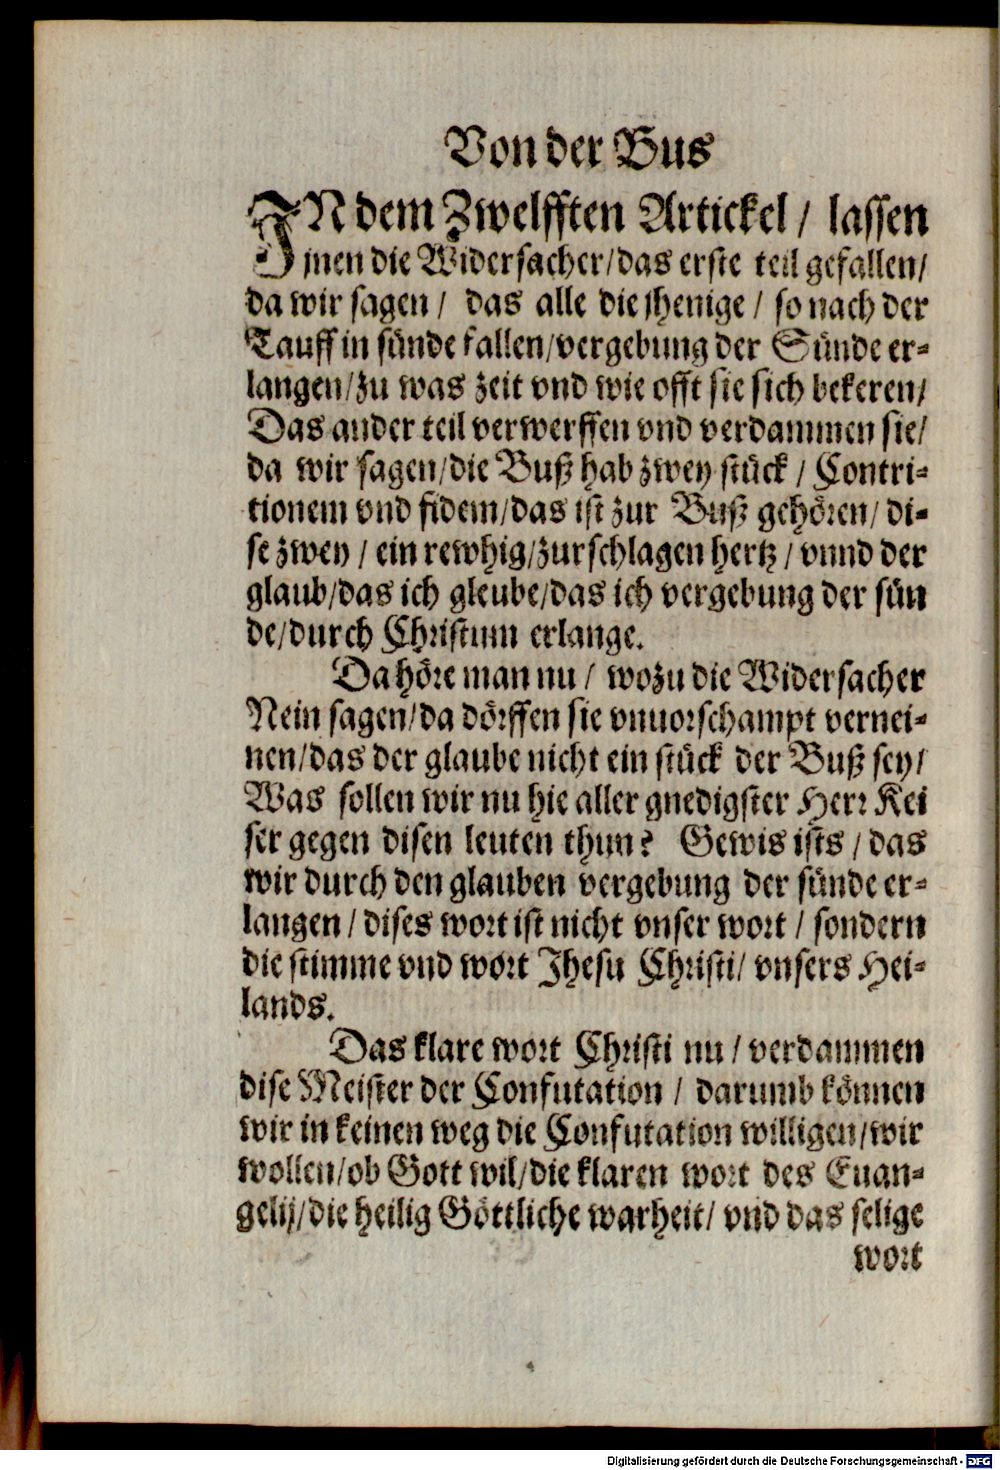 Von der Bus
JN dem Zwelfften Artickel / lassen
jnen die Widersacher/das erste teil gefallen/
da wir sagen / das alle die jhenige / so nach der
Tauff in sünde fallen/vergebung der Sünde er-
langen/zu was zeit vnd wie offt sie sich bekeren/
Das ander teil verwerffen vnd verdammen sie/
da wir sagen/die Buß hab zwey stück / Contri-
tionem vnd fidem/das ist zur Buß gehören/ di-
se zwey / ein rewhig/zurschlagen hertz / vnnd der
glaub/das ich gleube/das ich vergebung der sün
de/durch Christum erlange.
Da höre man nu / wozu die Widersacher
Nein sagen/da dörffen sie vnuorschampt vernei-
nen/das der glaube nicht ein stück der Buß sey/
Was sollen wir nu hie aller gnedigster Herr Kei
ser gegen disen leuten thun? Gewis ists / das
wir durch den glauben vergebung der sünde er-
langen / dises wort ist nicht vnser wort / sondern
die stimme vnd wort Jhesu Christi/ vnsers Hei-
lands.
Das klare wort Christi nu / verdammen
dise Meister der Confutation / darumb können
wir in keinen weg die Confutation willigen/wir
wollen/ob Gott wil/die klaren wort des Euan-
gelij/die heilig Göttliche warheit/ vnd das selige
wort
Digitalisierung gefördert durch die Deutsche Forschungsgemeinschaft - DFG